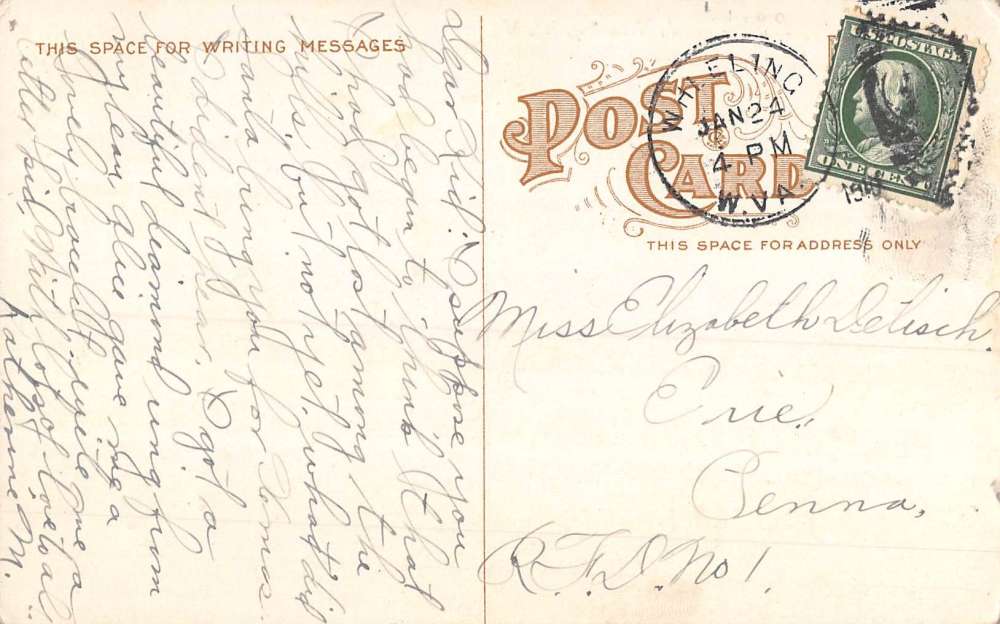 THIS SPACE FOR WRITING MESSAGES
Dear Kid:- I suppose you
had begun to think that
I had got lost among the
hills, but no not yet. What did
Santa bring you for Xmas.
I dident hear. I got a
beautiful diamond ring from
my beau, Alice gave me a
lovely bracelett. write me a
letter kid, With lots of love to all
Katherine M.
POST CARD
WHEELING
JAN 24
4 PM
W.VA.
191
U.S. POSTAGE
ONE CENT
THIS SPACE FOR ADDRESS ONLY
Miss Elizabeth Detisch.
Erie,
Penna,
R.F.D. No 1.